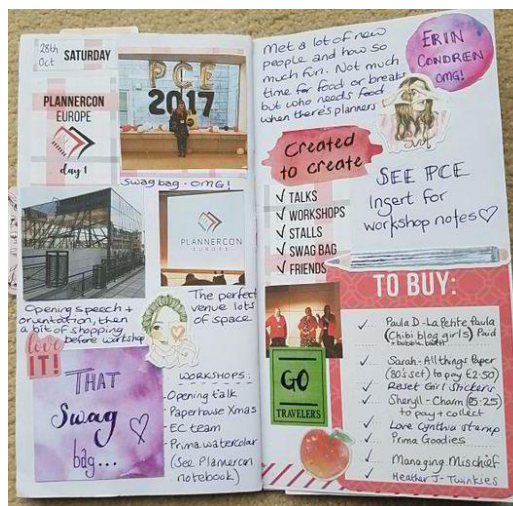 28th Oct SATURDAY
PLANNERCON
EUROPE
day 1
PCE
2017
Swag bag - OMG!
PLANNERCON
EUROPE
Opening speech +
orientation, then
a bit of shopping
before workshop
The perfect
venue lots
of space
love
IT!
THAT
Swag
bag...
WORKSHOPS:
- Opening talk
- Paperhouse Xmas
- EC team
- Prima watercolor
(See Plannercon
notebook)
Met a lot of new
people and how so
much fun. Not much
time for food or breaks
but who needs food
when there's planners
ERIN
CONDREN
OMG!
Created
to create
✓ TALKS
✓ WORKSHOPS
✓ STALLS
✓ SWAG BAG
✓ FRIENDS
SEE PCE
Insert for
workshop notes♡
TO BUY:
✓ Paula D - La Petite Paula
(Chibi blog girls) Paid
✓ Sarah - All things Paper
(80's set) to pay £2.50)
✓ Reset Girl Stickers
✓ Sheryll - Charm (£5.25)
to pay + collect
✓ Love Cynthia stamp
✓ Prima Goodies
✓ Managing Mischief
✓ Heather J - Twinkies
GO
TRAVELERS